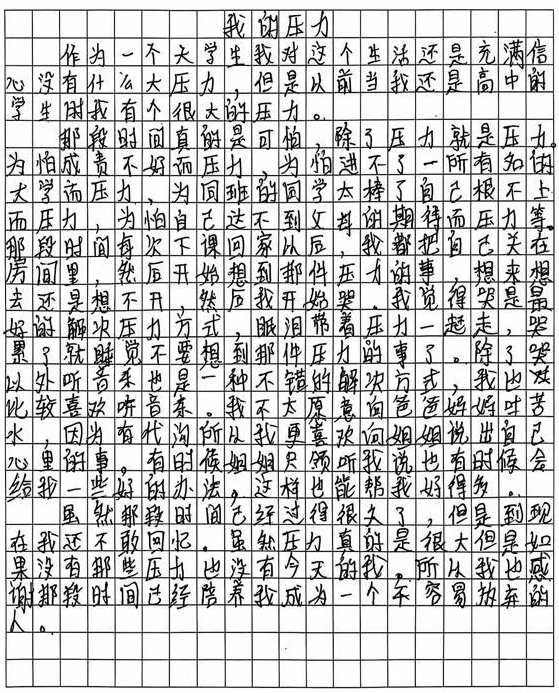 我的压力
作为一个大学生我对这个生活还是充满信
心没有什么大压力，但是以前当我还是高中的
学生时我有个很大的压力。
那段时间真的是可怕，除了压力就是压力。
为怕成责不好而压力，为怕进不了一所有名的
大学而压力，为同班的同学太棒了自己根不上
而压力，为怕自己达不到父母的期待而压力等。
那段时间每次下课回家以后，我都把自己关在
房间里，然后开始想到那件压力的事，想来想
去还是想不开，然后我开始哭。我觉得哭是最
好的解次压力方式，眼泪带着压力一起走，哭
累了就睡觉不要想到那件压力的事了。除了哭
以外听音乐也是一种不错的解次方式，我也
比较喜欢听音乐。我不太愿意向爸爸妈妈吐苦
水，因为有代沟所以我更喜欢向姐姐说出自己
心里的事。有的时候姐姐只倾听我说也有时候会
给我一些好的办法。这样也能帮我好得多。
虽然那段时间已经过得很久了，但是到现
在我还不敢回忆。虽然压力真的是很大但是如
果没有那些压力也没有今天的我。所以我也感
谢那段时间已经陪养我成为一个不容易放弃的
人。